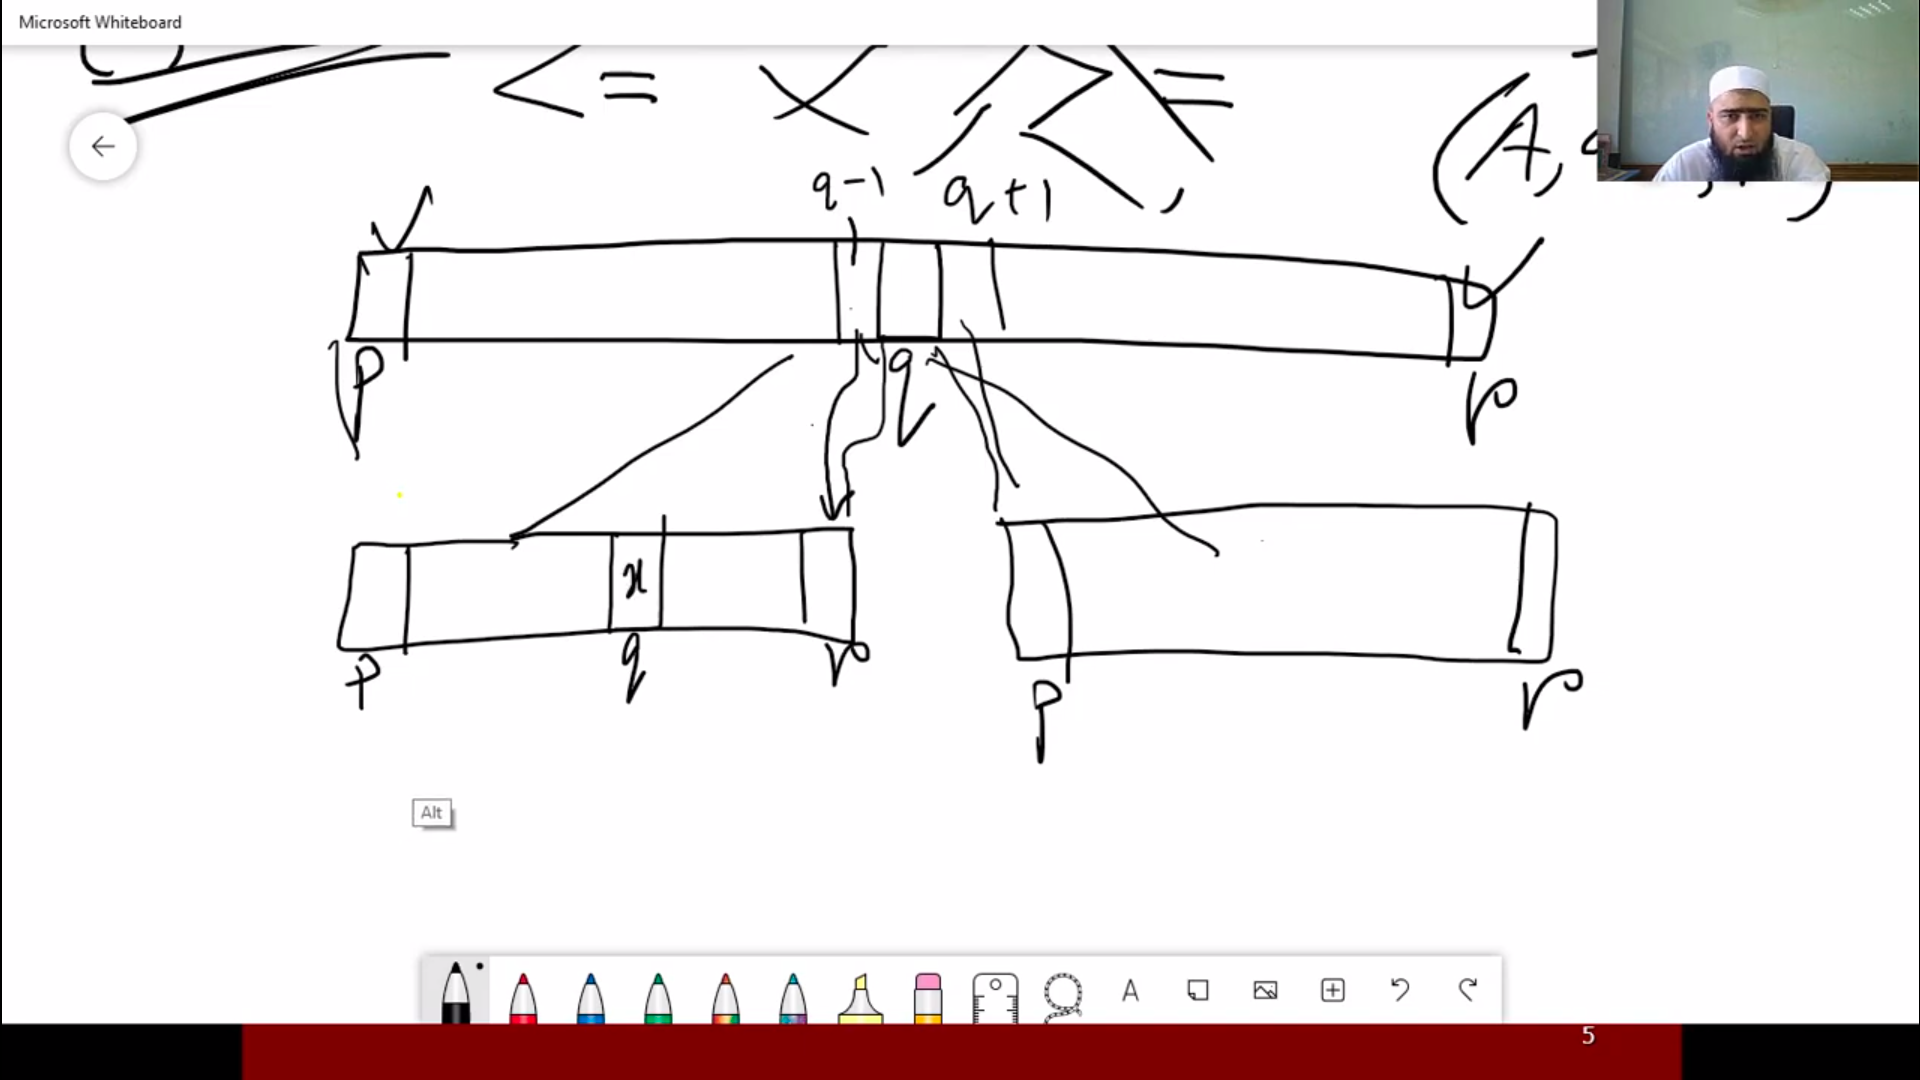 Microsoft Whiteboard
<= x >=
(A,
q-1 q+1 ,
p q r
x
p q r
p r
Alt
A
5